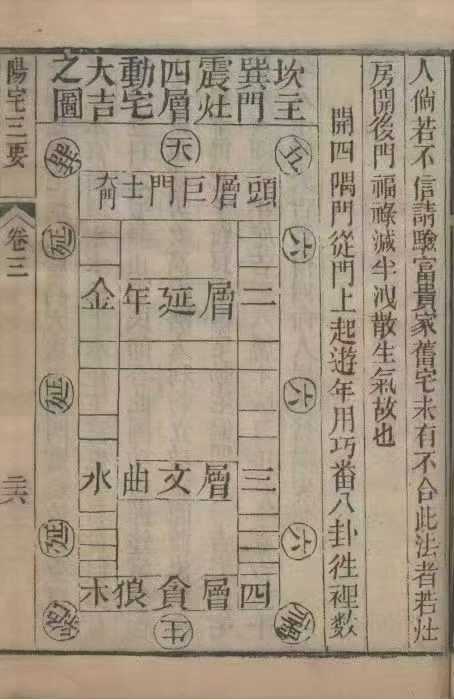 人倘若不信請驗富貴家舊宅未有不合此法者若灶
房開後門福祿減半洩散生氣故也
開四隅門從門上起遊年用巧番八卦徃裡數
坎主
巽門
震灶
四層
動宅
大吉
之圖
五
天
巽
頭層巨門土
大門
六
延
二層延年金
六
延
三層文曲水
六
延
四層貪狼木
禍
生
絕
陽宅三要
卷三
二六